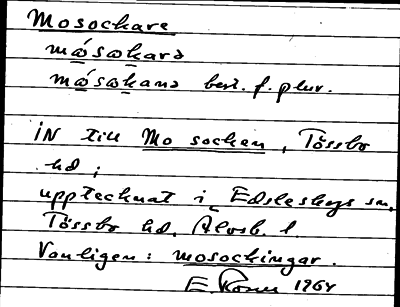 Mosockare
mɷ́sɷkarə
mɷ́sɷkanə best. f. plur.
IN till Mo socken, Tössbo
hd;
upptecknat i Edsleskogs sn,
Tössbo hd. Älvsb. l.
Vanligen: mosockingar.
E. 1964